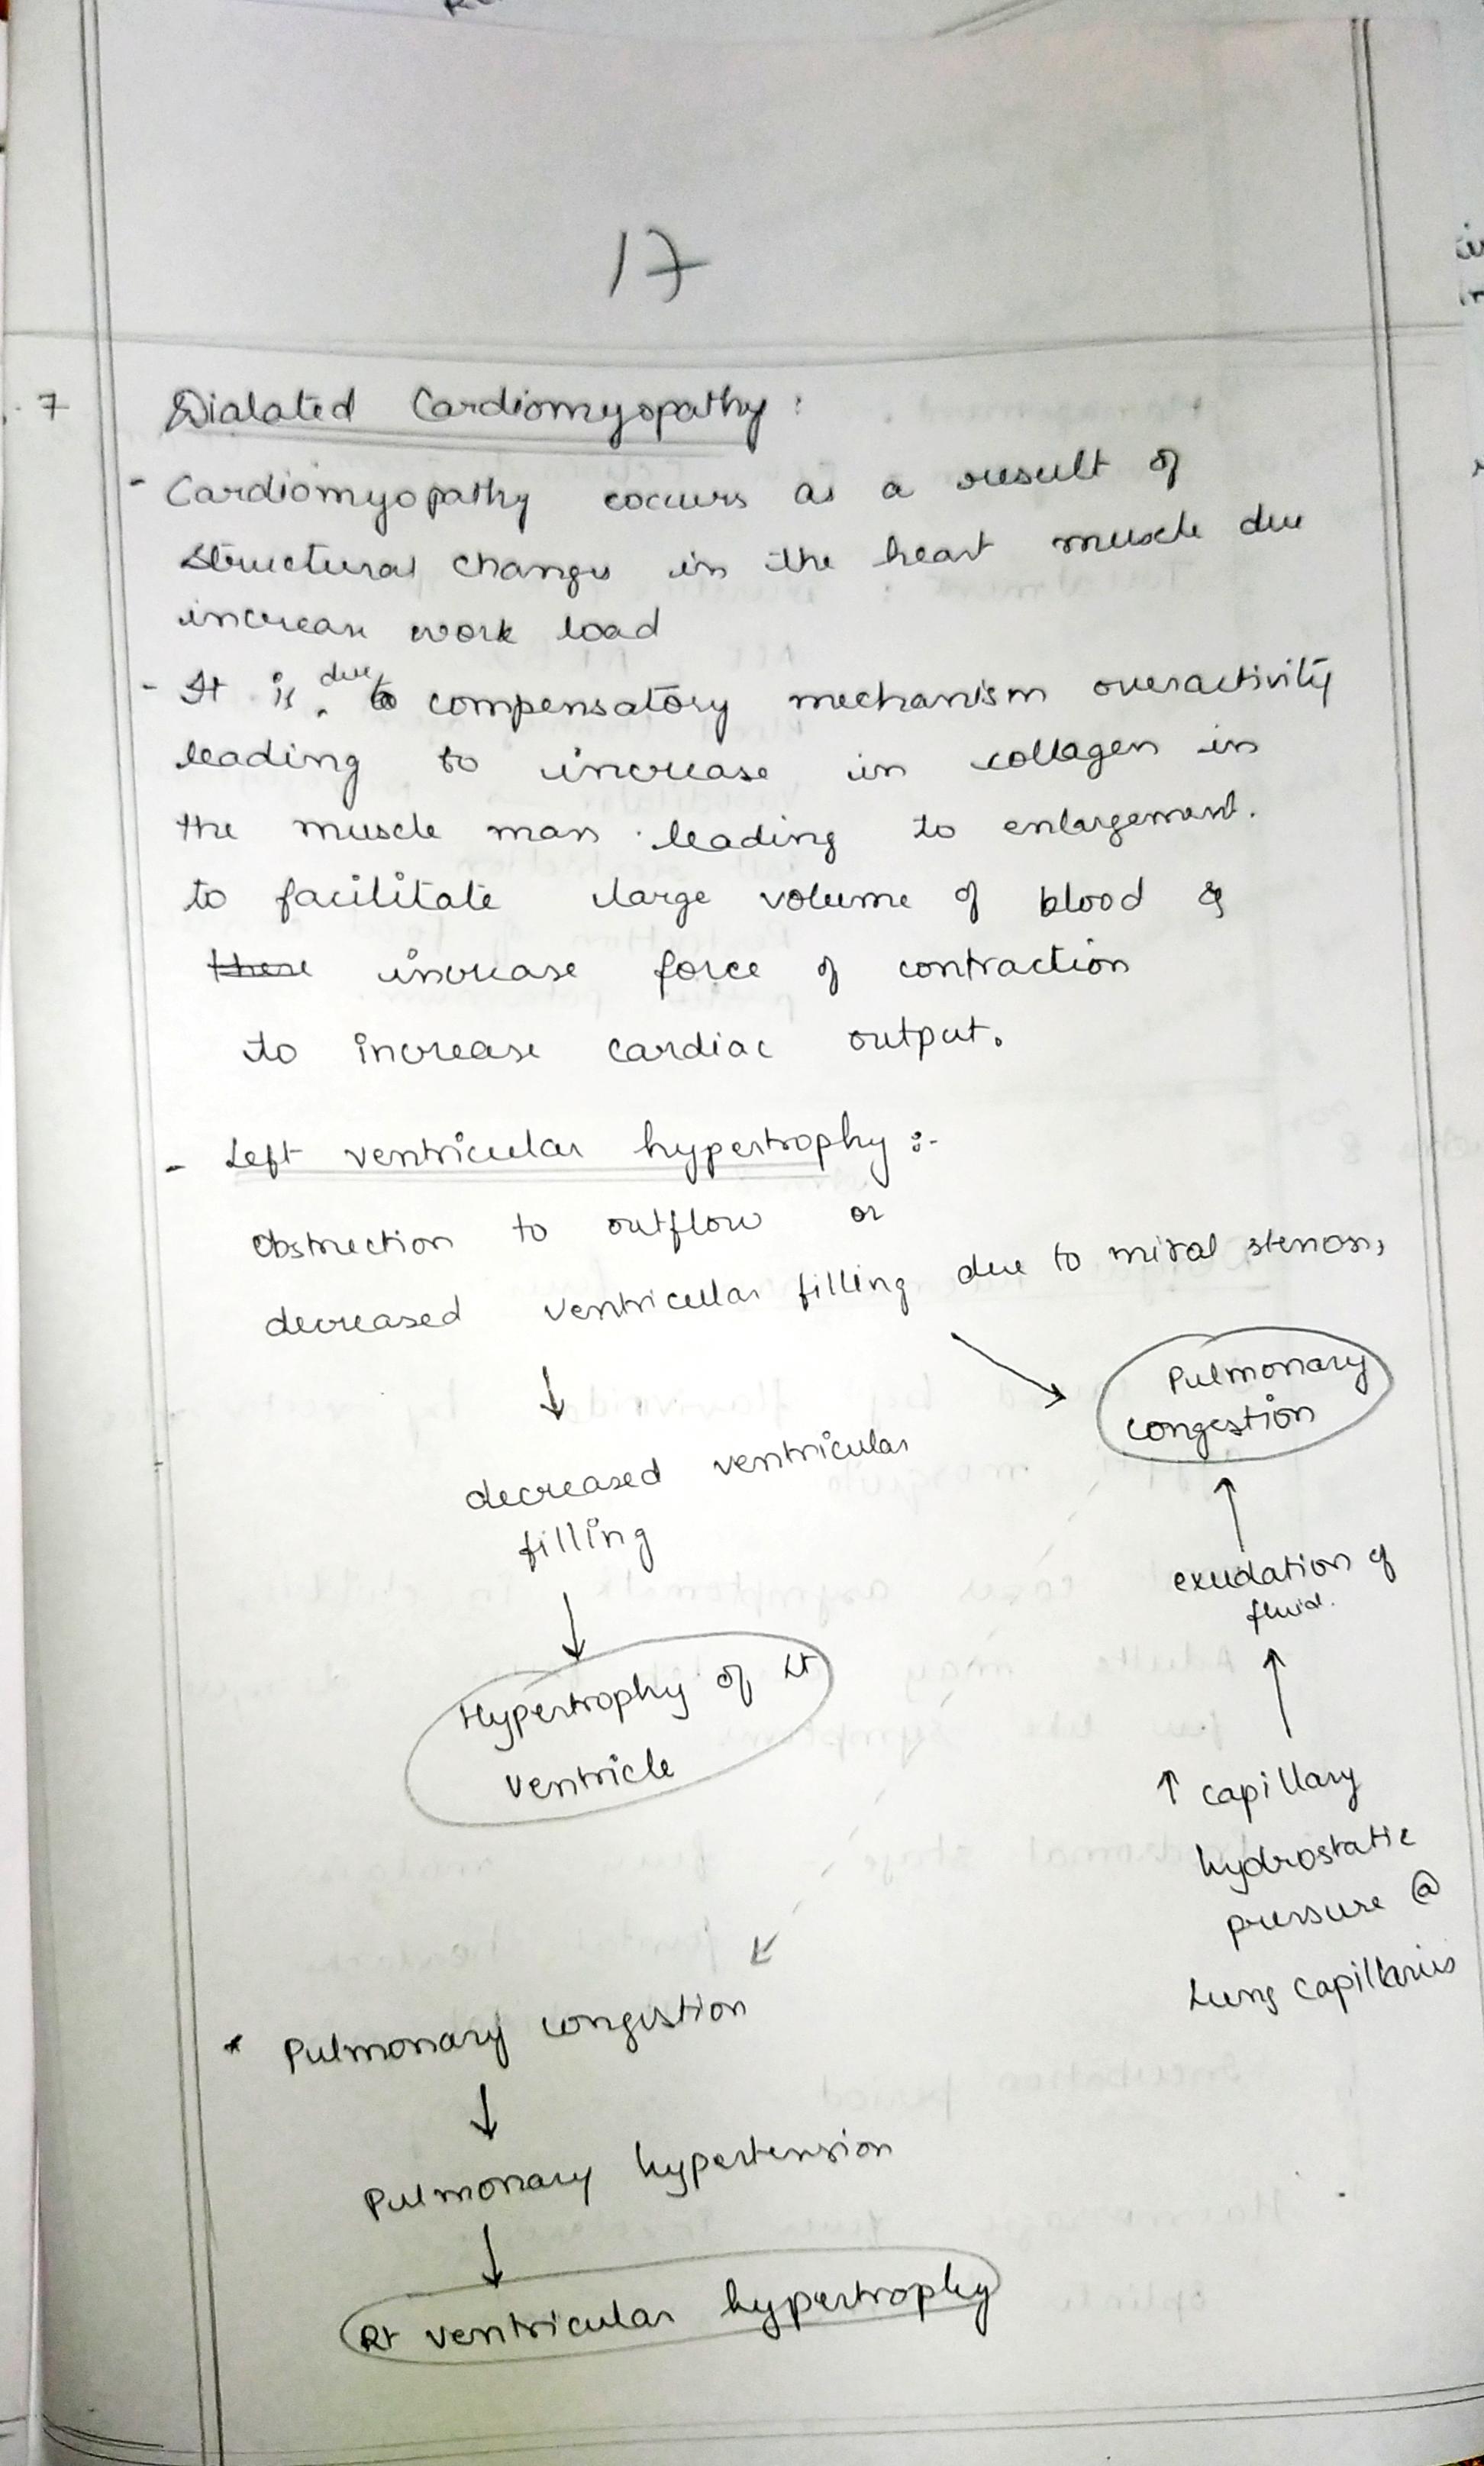 17
7
Dialated Cardiomyopathy :
- Cardiomyopathy occurs as a result of
structural changes in the heart muscle due
increase work load
- It is due to compensatory mechanism overactivity
leading to increase in collagen in
the muscle mass leading to enlargement.
to facilitate large volume of blood &
there increase force of contraction
to increase cardiac output.
- Left ventricular hypertrophy :-
Obstruction to outflow or
decreased ventricular filling due to mitral stenosis,
↓
↘
Pulmonary
congestion
↑
exudation of
fluid.
↑
↑ capillary
hydrostatic
pressure @
Lung capillaries
decreased ventricular
filling
↓
Hypertrophy of Lt
ventricle
* Pulmonary congestion
↓
Pulmonary hypertension
↓
Rt ventricular hypertrophy